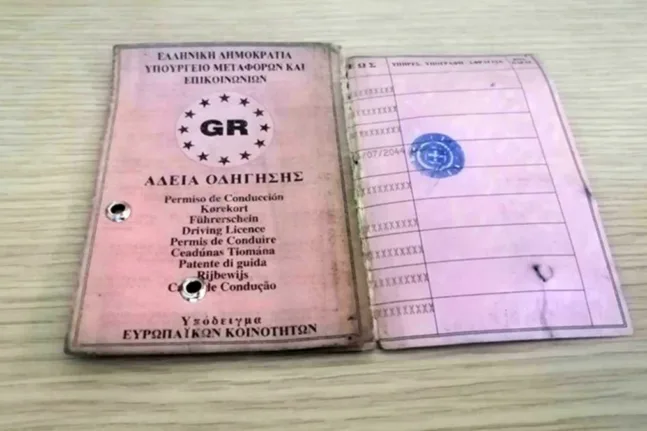 ΕΛΛΗΝΙΚΗ ΔΗΜΟΚΡΑΤΙΑ
ΥΠΟΥΡΓΕΙΟ ΜΕΤΑΦΟΡΩΝ ΚΑΙ
ΕΠΙΚΟΙΝΩΝΙΩΝ
GR
ΑΔΕΙΑ ΟΔΗΓΗΣΗΣ
Permiso de Conducción
Kørekort
Führerschein
Driving Licence
Permis de Conduire
Ceadúnas Tiomána
Patente di guida
Rijbewijs
de Condução
Υπόδειγμα
ΕΥΡΩΠΑΪΚΩΝ ΚΟΙΝΟΤΗΤΩΝ
ΕΩΣ ΥΠΟΓΡΑΦΗ ΣΦΡΑΓΙΔΑ
XXXXXXXX
XXXXXXXX
XXXXXXXX
/07/2044
XXXXXXXX
XXXXXXXX
XXXXXXXX
XXXXXXXX
XXXXXXXX